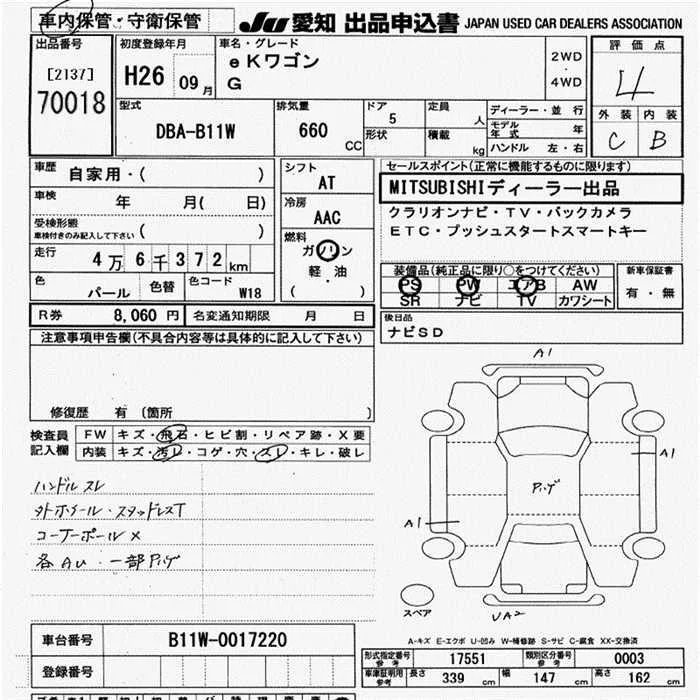 車内保管・守衛保管
JU 愛知 出品申込書 JAPAN USED CAR DEALERS ASSOCIATION
出品番号
[2137]
70018
初度登録年月
H26 09月
車名・グレード
eKワゴン
G
2WD
・
4WD
評価点
4
外装 内装
C B
型式
DBA-B11W
排気量
660 CC
ドア
5
形状
定員
人
積載
kg
ディーラー・並行
モデル年式 年
ハンドル 左・右
車歴
自家用・( )
車検
年 月( 日)
受検形態
車検付きのみ記入して下さい ( )
走行
4万6千372km
色
パール
色替
色コード
W18
シフト
AT
冷房
AAC
燃料
ガソリン
軽・油
( )
セールスポイント(正常に機能するものに限ります)
MITSUBISHIディーラー出品
クラリオンナビ・TV・バックカメラ
ETC・プッシュスタートスマートキー
装備品(純正品に限り○をつけてください)
PS PW エアB AW
SR ナビ TV カワシート
新車保証書
有・無
R券 8,060円 名変通知期限 月 日
後日品
ナビSD
注意事項申告欄(不具合内容等は具体的に記入して下さい)
修復歴 有(箇所 )
検査員
記入欄
FW キズ・飛石・ヒビ割・リペア跡・X要
内装 キズ・汚レ・コゲ・穴・スレ・キレ・破レ
ハンドルスレ
外ホイール・スタッドレスT
コーナーポール×
各AU・一部Pハゲ
A1
A1
Pハゲ
A1
スペア
UA2
A-キズ E-エクボ U-凹み W-補修跡 S-サビ C-腐食 XX-交換済
車台番号 B11W-0017220
登録番号
形式指定番号
参考
17551
類別区分番号
参考
0003
車庫証明用
参考
長さ 339 cm 幅 147 cm 高さ 162 cm